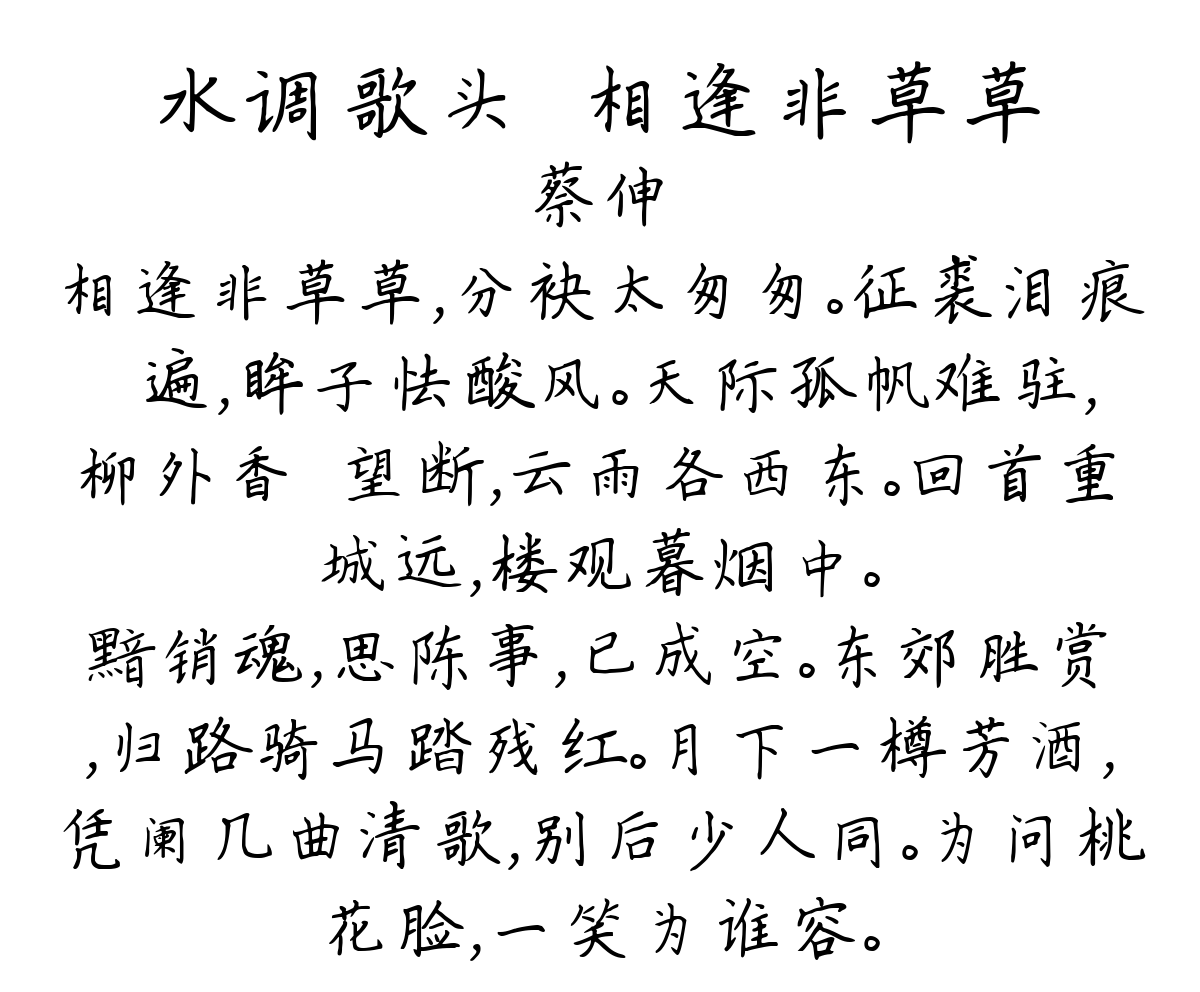 水调歌头 相逢非草草
蔡伸
相逢非草草,分袂太匆匆。征裘泪痕
遍,眸子怯酸风。天际孤帆难驻,
柳外香 望断,云雨各西东。回首重
城远,楼观暮烟中。
黯销魂,思陈事,已成空。东郊胜赏
,归路骑马踏残红。月下一樽芳酒,
凭阑几曲清歌,别后少人同。为问桃
花脸,一笑为谁容。